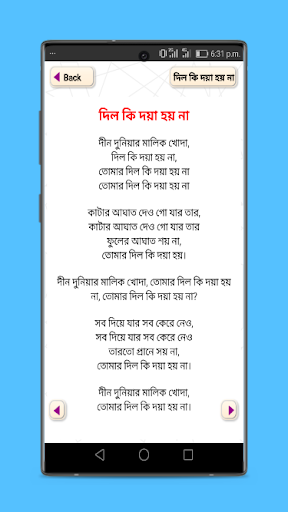 ... 6:31 p.m.
Back
দিল কি দয়া হয় না
দিল কি দয়া হয় না
দীন দুনিয়ার মালিক খোদা,
দিল কি দয়া হয় না,
তোমার দিল কি দয়া হয় না
তোমার দিল কি দয়া হয় না
কাটার আঘাত দেও গো যার তার,
কাটার আঘাত দেও গো যার তার
ফুলের আঘাত শয় না,
তোমার দিল কি দয়া হয়।
দীন দুনিয়ার মালিক খোদা, তোমার দিল কি দয়া হয়
না, তোমার দিল কি দয়া হয় না?
সব দিয়ে যার সব কেরে নেও,
সব দিয়ে যার সব কেরে নেও
তারতো প্রানে সয় না,
তোমার দিল কি দয়া হয় না।
দীন দুনিয়ার মালিক খোদা,
তোমার দিল কি দয়া হয় না।